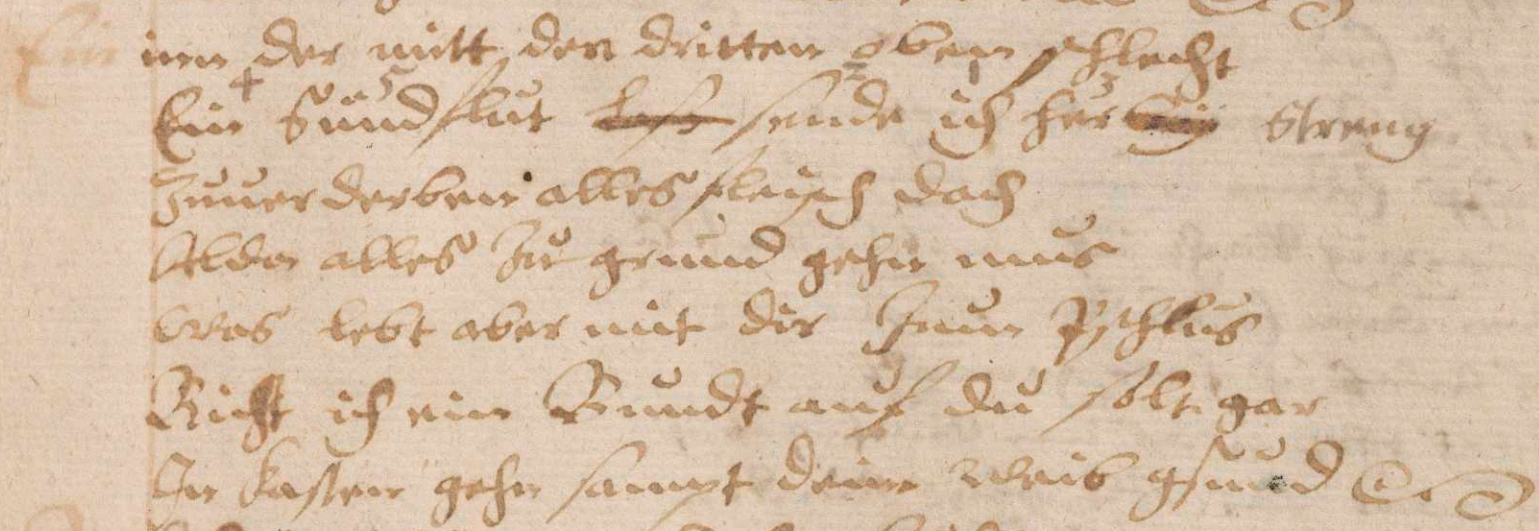 inn der mitt den dritten oben schlecht
Ein Sündflut sende ich her Streng
Zuuerderben alles fleisch doch
Alda alles Zu grund gehn mus
Was lebt aber mit dir Zum
Richt ich ein Bundt auf du solt gar
In kasten gehn sampt deim weib gsund